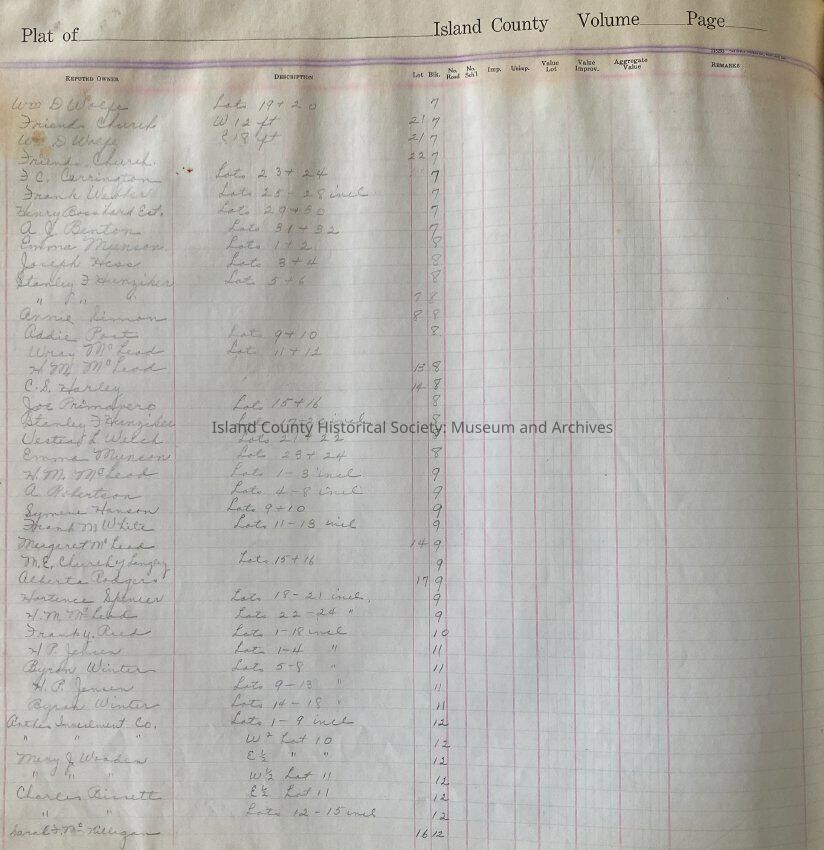 Plat of Island County Volume Page
Reputed Owner Description Lot Blk. No. Road No. Sch'l Imp. Unimp. Value Lot Value Improv. Aggregate Value Remarks
Wm D Wolfe Lots 19+20 7
Friends Church W 12 ft 21 7
Wm D Wolfe E 18 ft 21 7
Friends Church. 22 7
F C. Carrington Lots 23+24 7
Frank Weber Lots 25-28 incl 7
Henry Bosshard Est. Lots 29+30 7
A J Benton Lots 31+32 7
Emma Munson Lots 1+2 8
Joseph Hess Lots 3+4 8
Stanley F Hunziker Lots 5+6 8
" " " 7 8
Annie 8 8
Addie Post Lots 9+10 8
Wray McLeod Lots 11+12
H. M. McLeod 13 8
C. S. Harley 14 8
Joe Primavero Lots 15+16 8
Stanley F Hunziker Lots 17-20 incl 8
Island County Historical Society: Museum and Archives
L Welch Lots 21+22 8
Emma Munson Lots 23+24 8
H. M. McLeod Lots 1-3 incl 9
A Robertson Lots 4-8 incl 9
Hanson Lots 9+10 9
Frank M White Lots 11-13 incl 9
Margaret McLeod 14 9
M.E. Church Langley Lots 15+16 9
Alberta Rodgers 17 9
Hortence Spencer Lots 18-21 incl. 9
H. M. McLeod Lots 22-24 " 9
Frank Y. Reed Lots 1-18 incl 10
H P. Jensen Lots 1-4 " 11
Byron Winter Lots 5-8 " 11
H. P. Jensen Lots 9-13 " 11
Byron Winter Lots 14-18 " 11
Anthes Investment Co. Lots 1-9 incl 12
" " " W½ Lot 10 12
Mery J Wooden E½ " " 12
" " " W½ Lot 11 12
Charles Bissett E½ Lot 11 12
" " Lots 12-15 incl 12
Sarah F. McKilligan 16 12